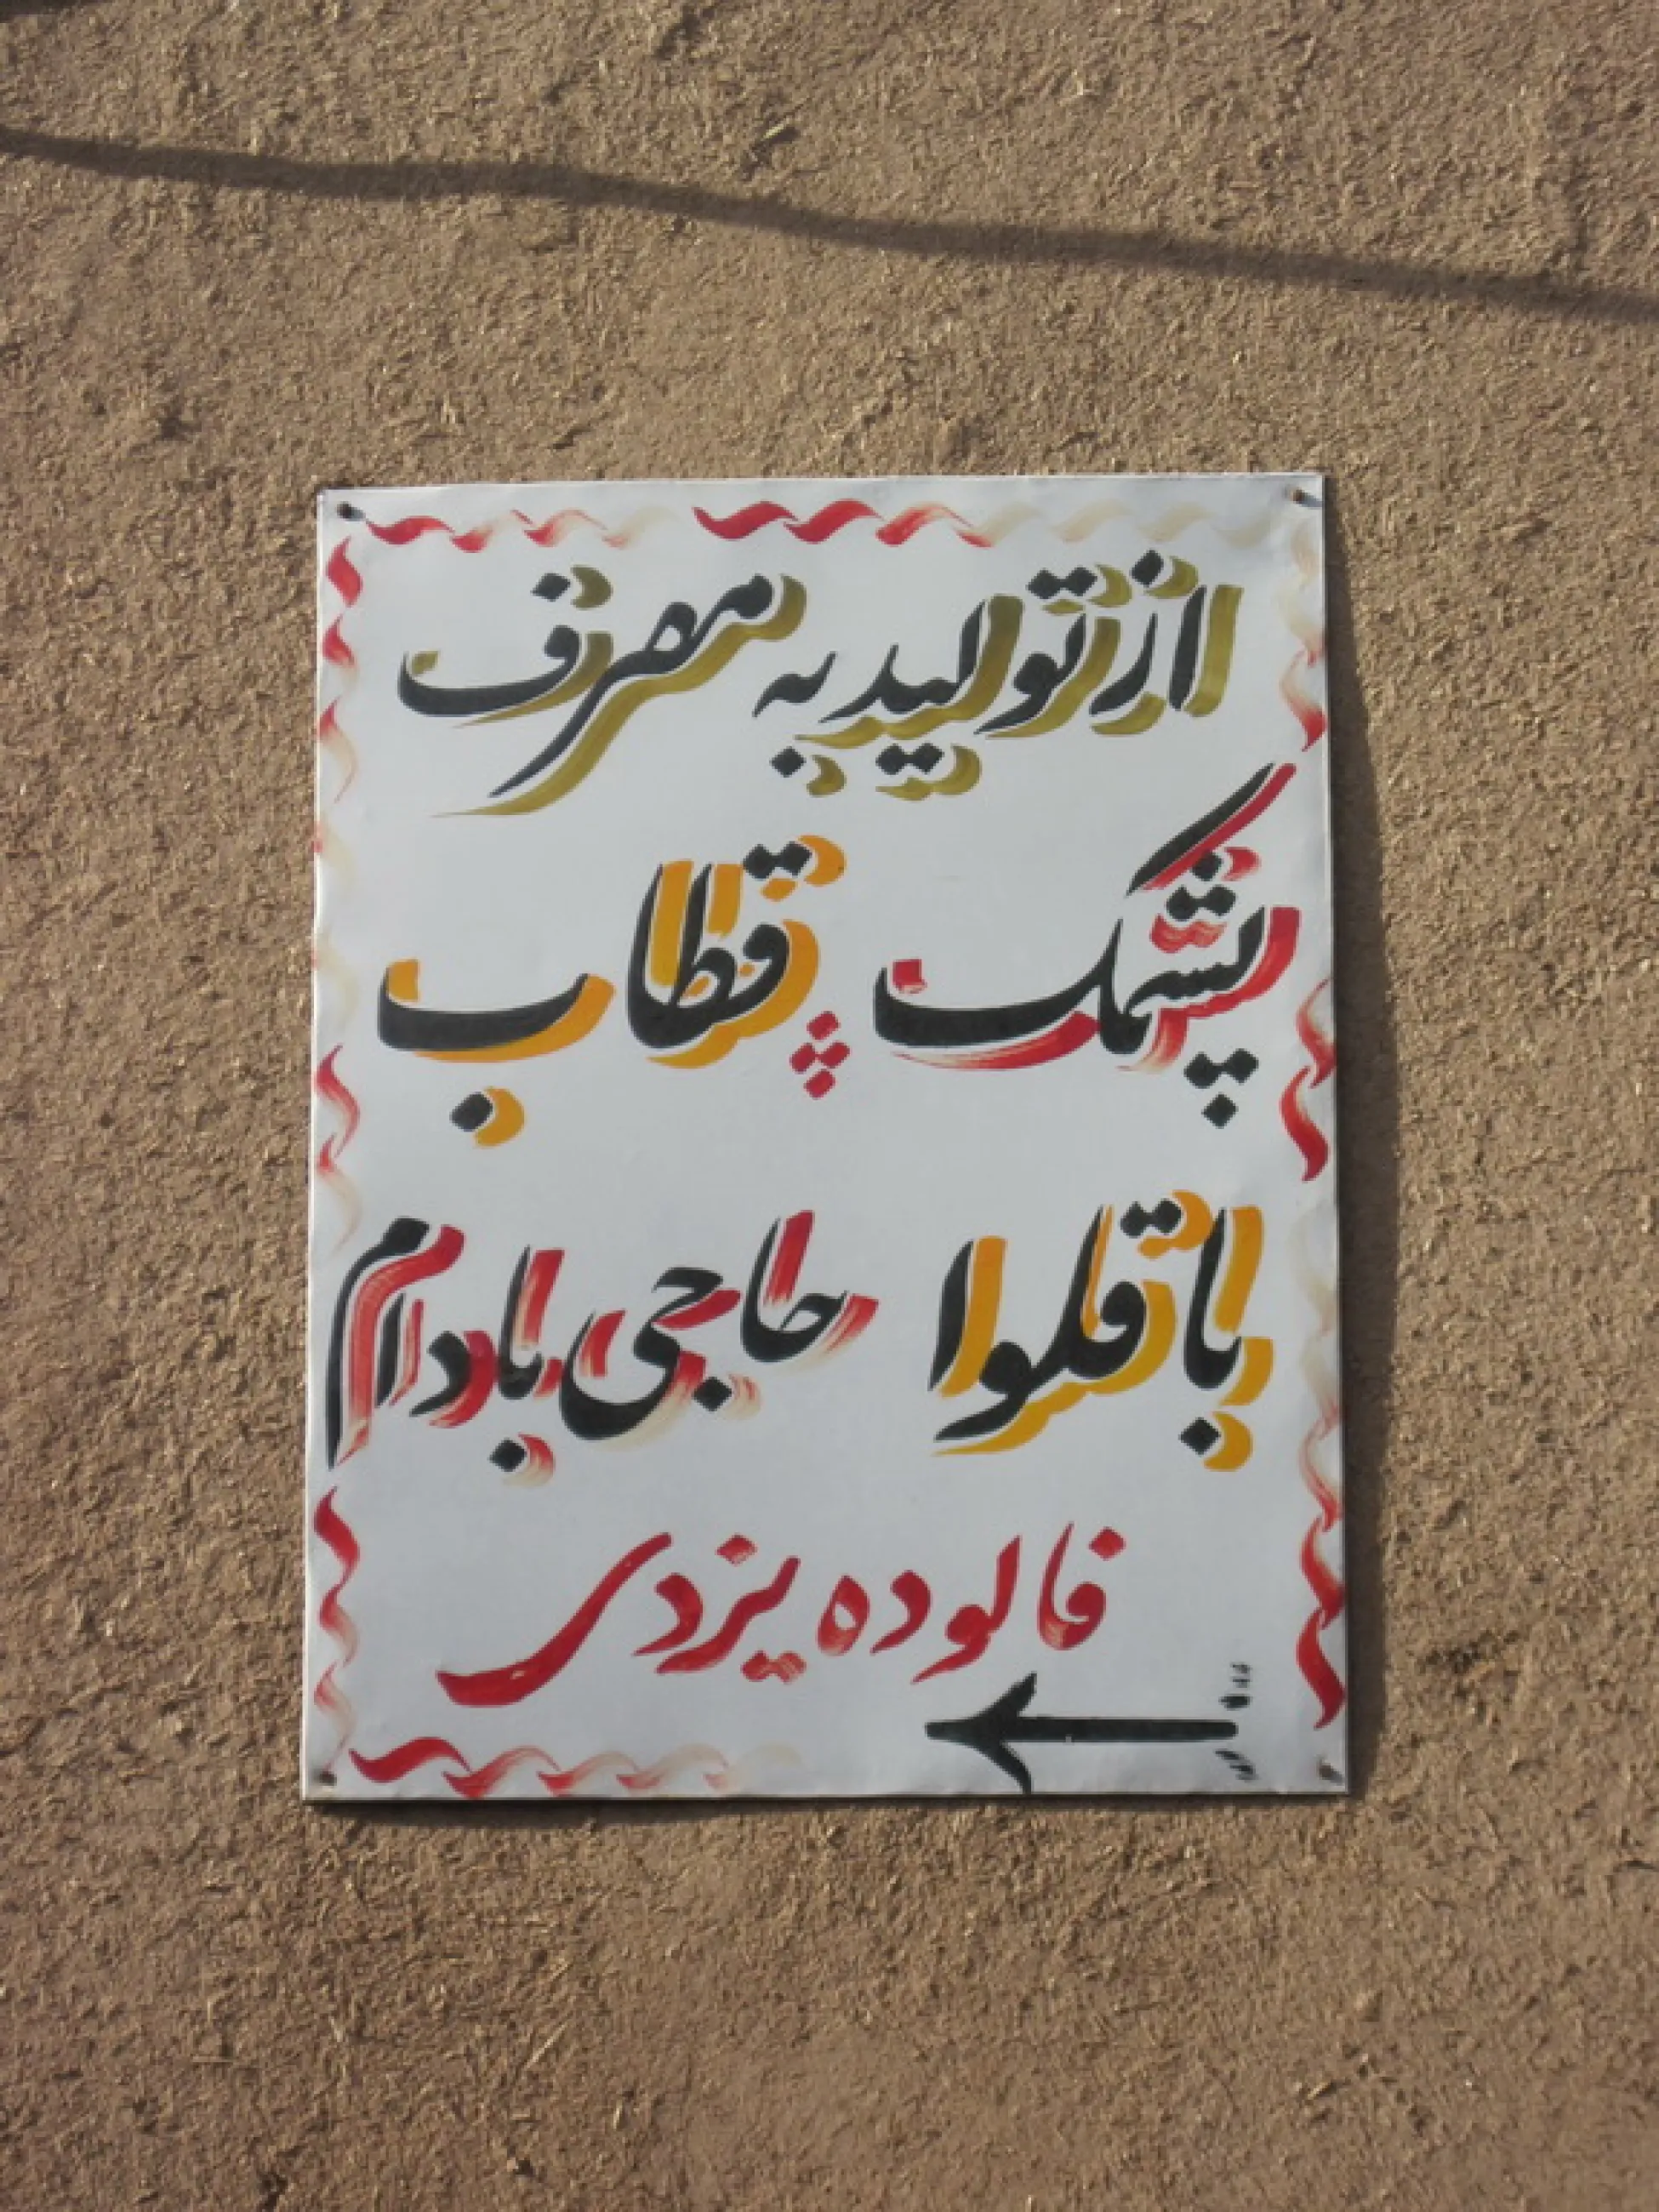 از تولید به مصرف
پشمک قطاب
باقلوا حاجی بادام
فالوده یزدی